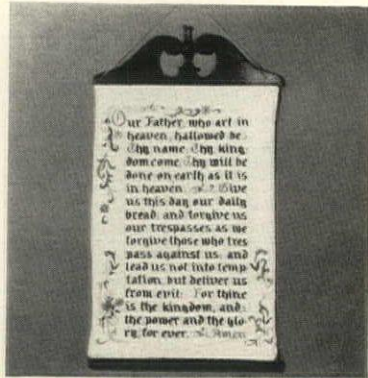 Our Father, who art in
heaven, hallowed be
Thy name. Thy king
dom come. Thy will be
done on earth as it is
in heaven. Give
us this day our daily
bread; and forgive us
our trespasses as we
forgive those who tres
pass against us; and
lead us not into temp
tation, but deliver us
from evil: For thine
is the kingdom, and
the power and the glo
ry, for ever. Amen